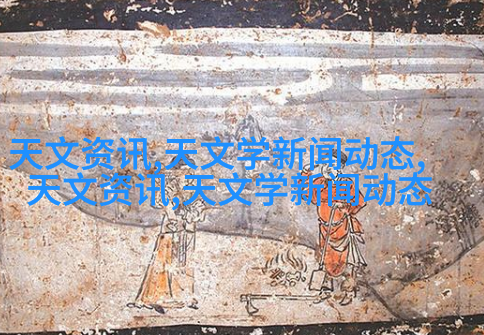 天文资讯,天文学新闻动态,
天文资讯,天文学新闻动态